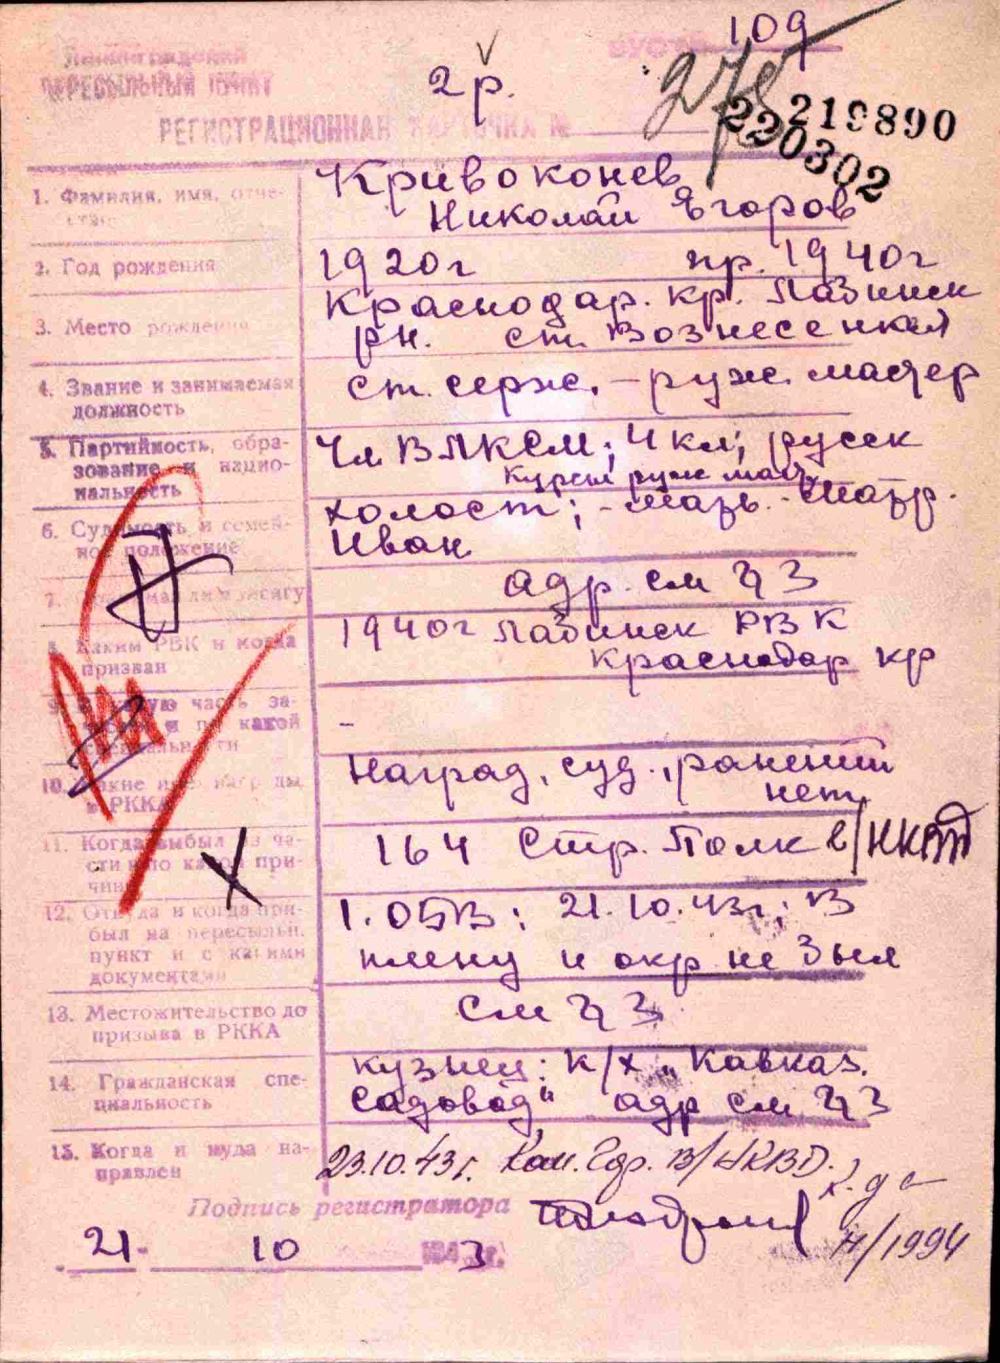 109
Ленинградский
ПЕРЕСЫЛЬНЫЙ ПУНКТ
2р.
278
219890
220302
РЕГИСТРАЦИОННАЯ КАРТОЧКА №
1. Фамилия, имя, отчество
Кривоконев
Николай Егоров
2. Год рождения
1920г пр. 1940г
3. Место рождения
Краснодар. кр. Лабинск
рн. ст. Вознесенкая
4. Звание и занимаемая
должность
ст. серж. – руж. мастер
5. Партийность, обра-
зование и нацио-
нальность
Чл ВЛКСМ; 4 кл; русск
Курсы руж маст
6. Судимость и семей-
ное положение
холост; -
Иван
7.
адр. см Ч 3
8. Каким РВК и когда
призван
1940г Лабинск РВК
Краснодар кр
9. В какую часть за-
и по какой
специальности
–
10. Какие имел награды
в РККА
Наград, суд., ранений
нет
11. Когда выбыл из ча-
сти и по какой при-
чине
164 Стр. Полк в/НКВД
12. Откуда и когда при-
был на пересыльн.
пункт и с какими
документами
1. ОБВ; 21.10.43г; В
плену и окр не был
13. Местожительство до
призыва в РККА
См Ч 3
14. Гражданская спе-
циальность
кузнец: к/х „Кавказ.
Садовод" адр см Ч 3
15. Когда и куда на-
правлен
23.10.43г. Кам. Гор. В/НКВД.
Подпись регистратора
н/1994
21 10 3